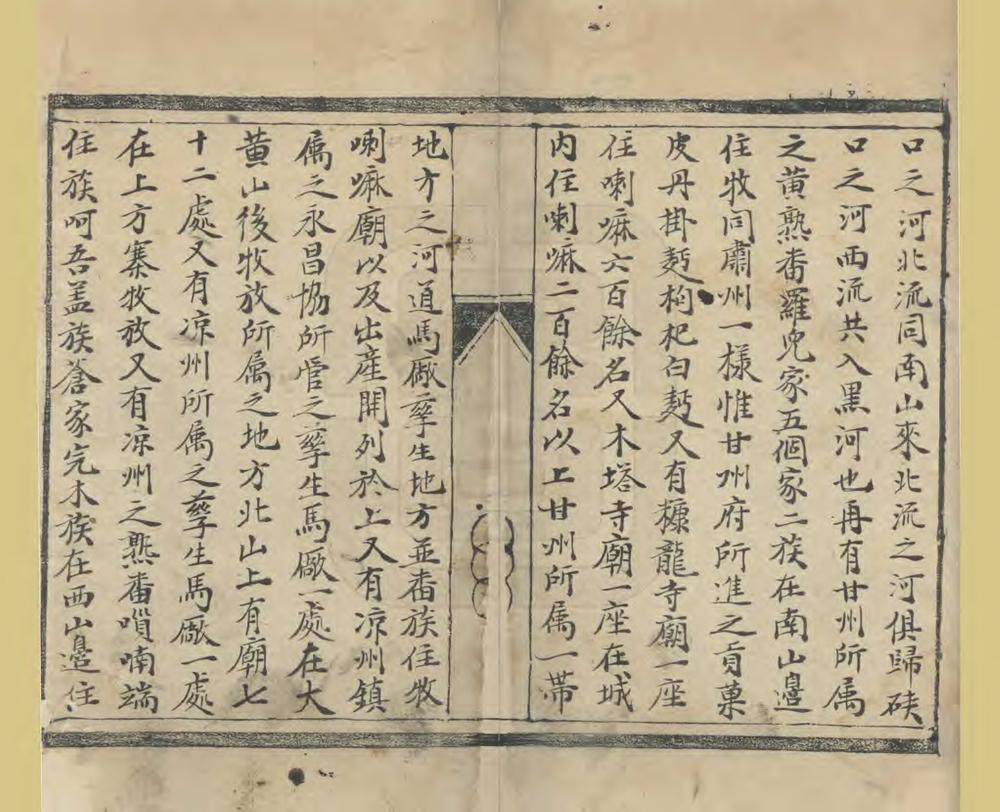 口之河北流同南山來北流之河俱歸硤
口之河西流共入黑河也再有甘州所属
之黄熟番羅児家五個家二族在南山邉
住牧同肅州一様惟甘州府所進之貢菓
皮丹掛麫枸杞白麫又有糠龍寺廟一座
住喇嘛六百餘名又木塔寺廟一座在城
内住喇嘛二百餘名以上甘州所属一帯
地方之河道馬廠孳生地方並番族住牧
喇嘛廟以及出産開列於上又有凉州鎮
属之永昌協所管之孳生馬廠一處在大
黄山後牧放所属之地方北山上有廟七
十二處又有凉州所属之孳生馬廠一處
在上方寨牧放又有凉州之熟番嗩喃端
住族呵吾盖族蒼家完木族在西山邉住